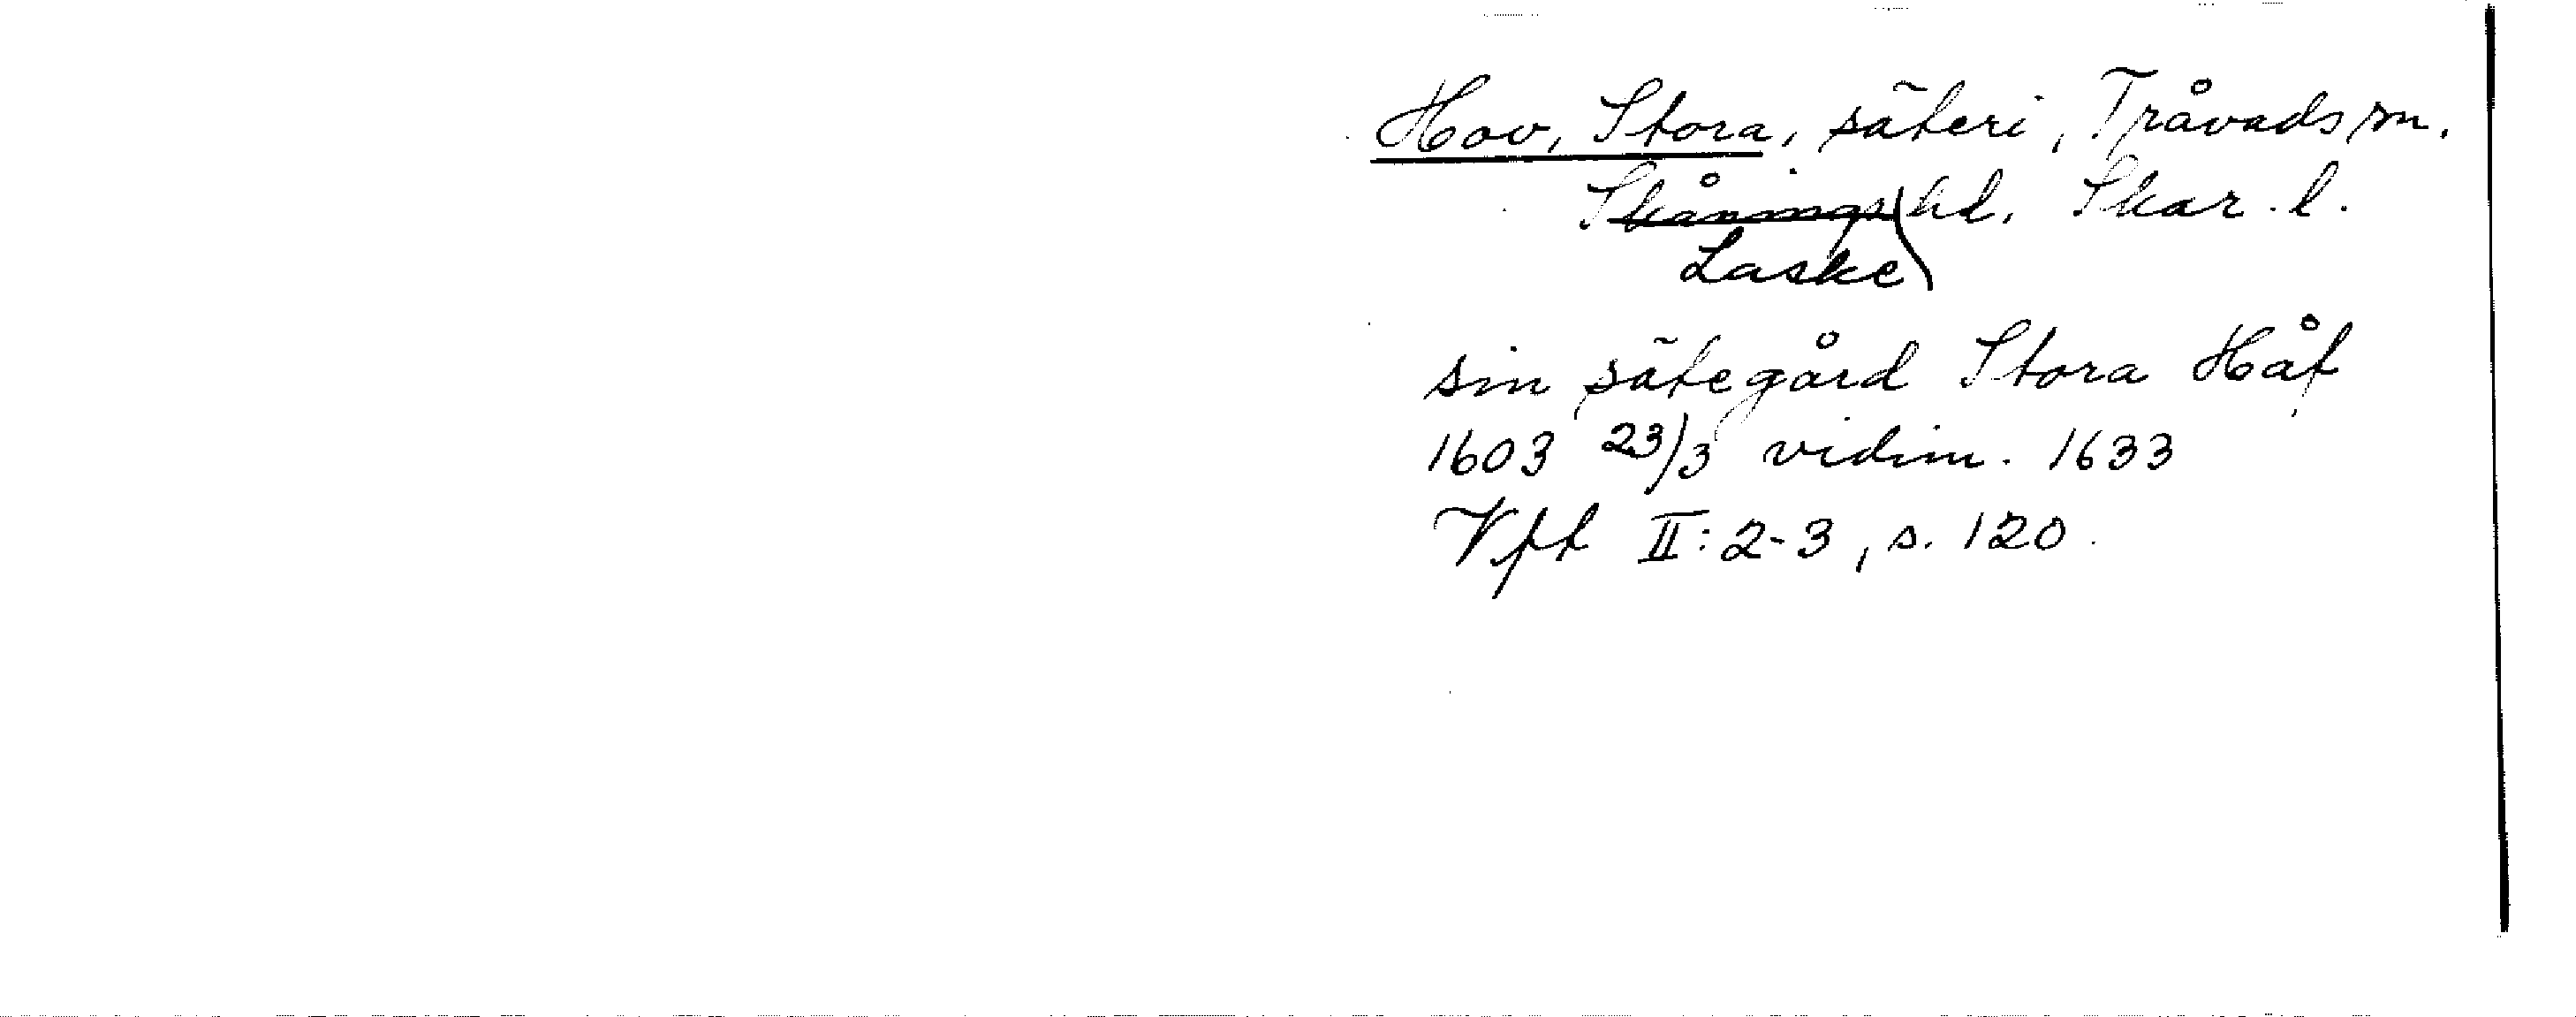 Hov, Stora, säteri, Tråvads sn.
Skånings hd. Skar. l.
Laske
sin sätegård Stora Håf
1603 23/3 vidim. 1633
Vft II: 2-3, s. 120.